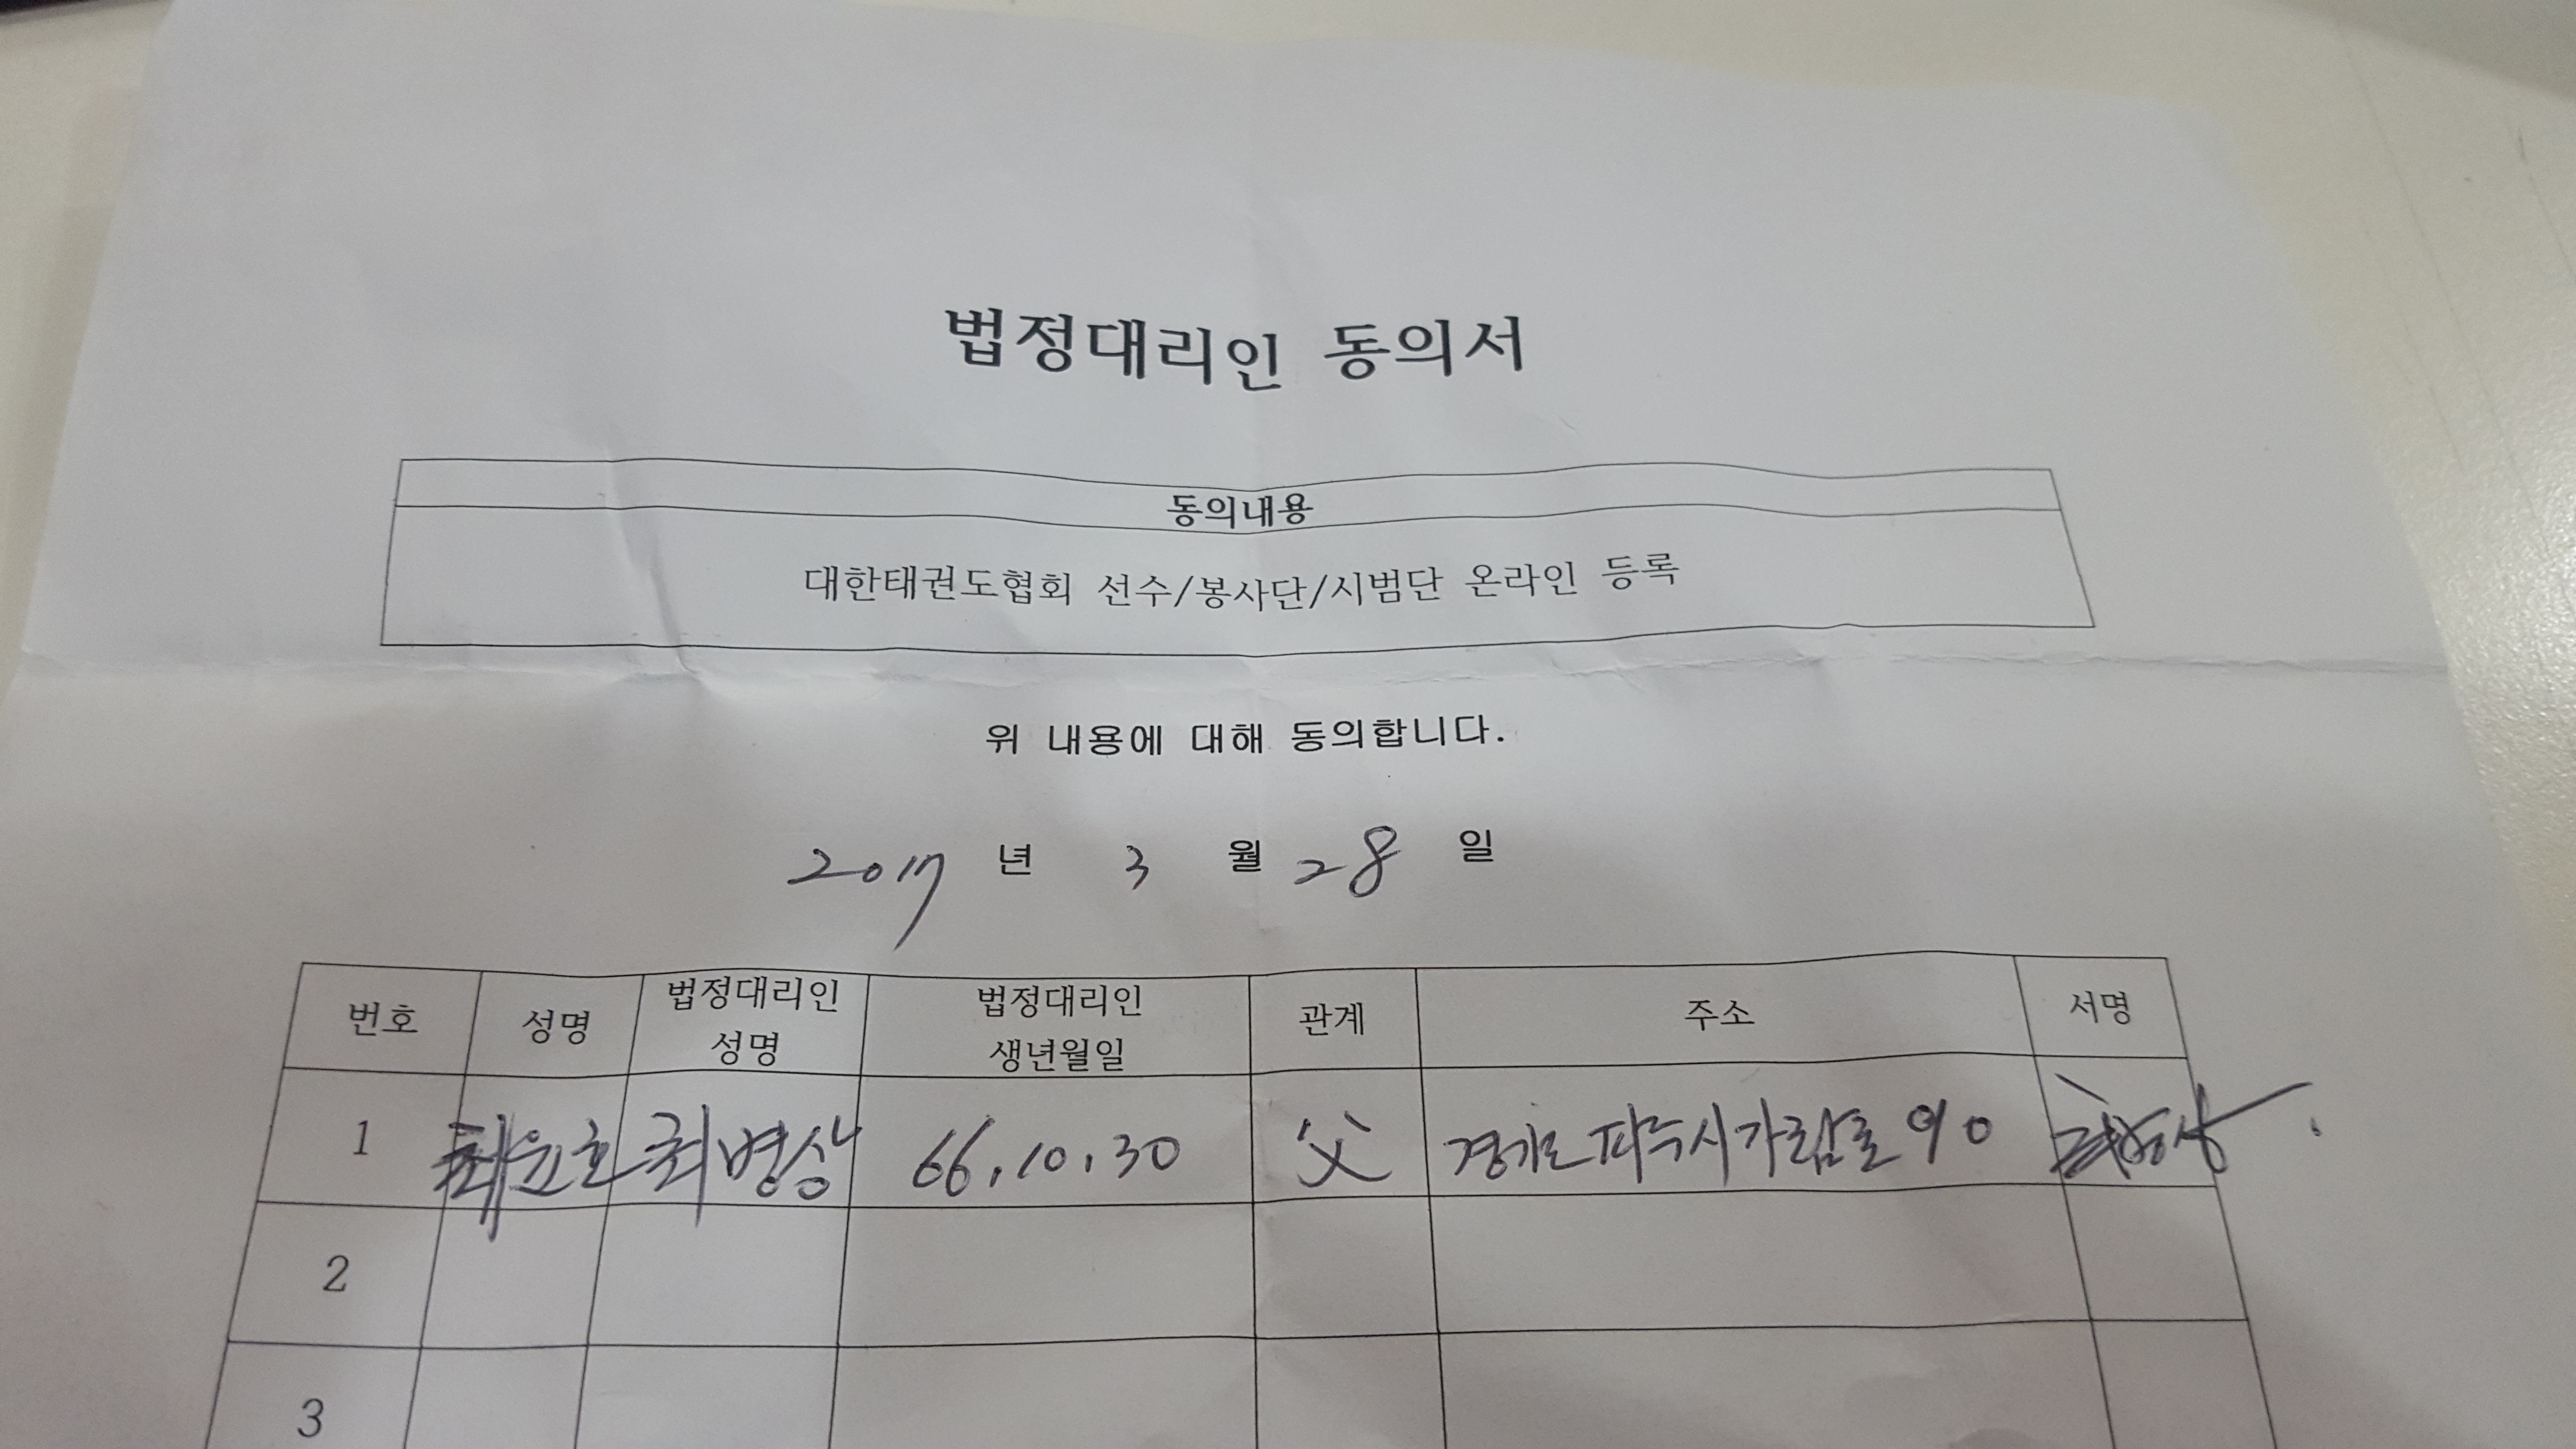 법정대리인 동의서
동의내용
대한태권도협회 선수/봉사단/시범단 온라인 등록
위 내용에 대해 동의합니다.
2017 년 3 월 28 일
번호 성명 법정대리인 성명 법정대리인 생년월일 관계 주소 서명
1 최윤호 최병상 66.10.30 父 경기도 파주시 가람로 90
2
3